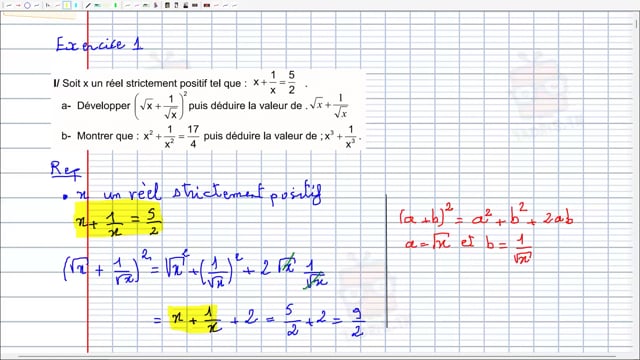 Exercice 1
I/ Soit x un réel strictement positif tel que : x + 1/x = 5/2 .
a- Développer (√x + 1/√x)² puis déduire la valeur de . √x + 1/√x
b- Montrer que : x² + 1/x² = 17/4 puis déduire la valeur de ; x³ + 1/x³ .
Rep
• x un réel strictement positif
x + 1/x = 5/2
(√x + 1/√x)² = √x² + (1/√x)² + 2 √x 1/√x
= x + 1/x + 2 = 5/2 + 2 = 9/2
(a+b)² = a² + b² + 2ab
a = √x et b = 1/√x